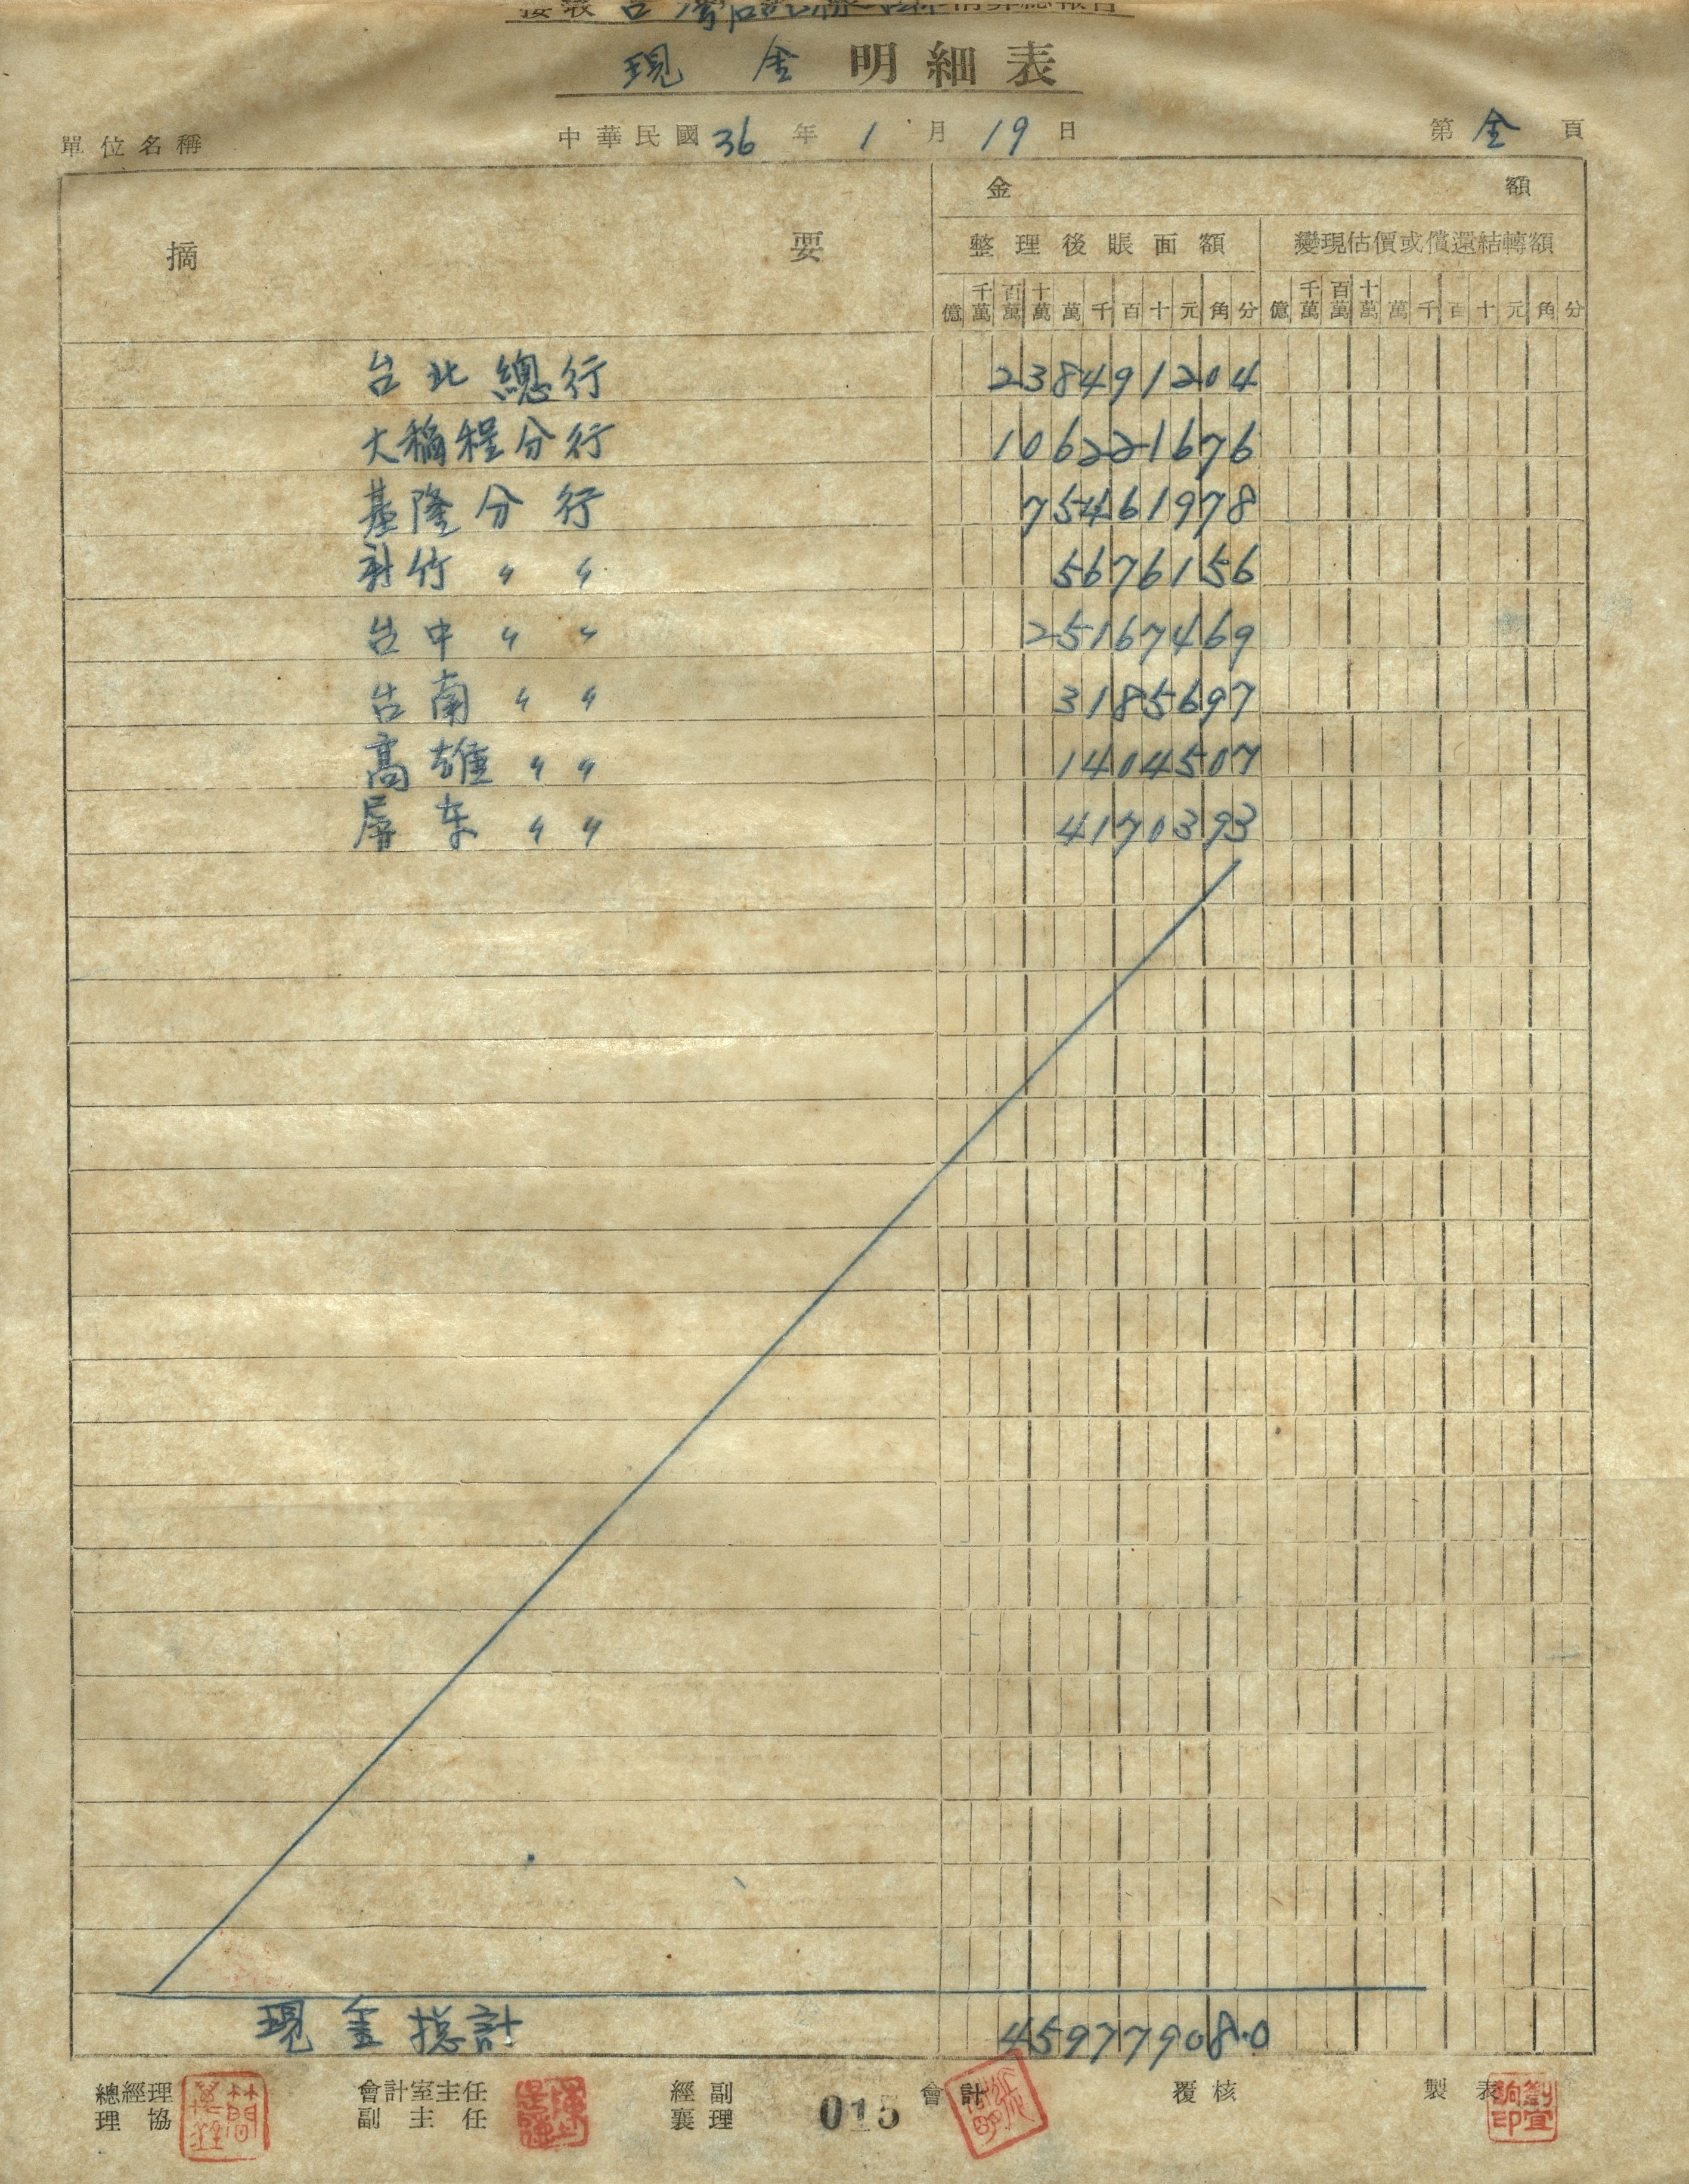 接收台灣 清算總報告
現金明細表
單位名稱 中華民國36年1月19日 第全頁
摘要 金額
整理後賬面額 變現估價或償還結轉額
億 千萬 百萬 十萬 萬 千 百 十 元 角 分 億 千萬 百萬 十萬 萬 千 百 十 元 角 分
台北總行 238491204
大稱程分行 106221676
基隆分行 75461978
新竹 〃 〃 5676156
台中 〃 〃 25167469
台南 〃 〃 3185697
高雄 〃 〃 1404507
屏东 〃 〃 4170393
現金摠計 459779080
總經理 會計室主任 經副 會計 覆核 製表
理協 副主任 襄理
015